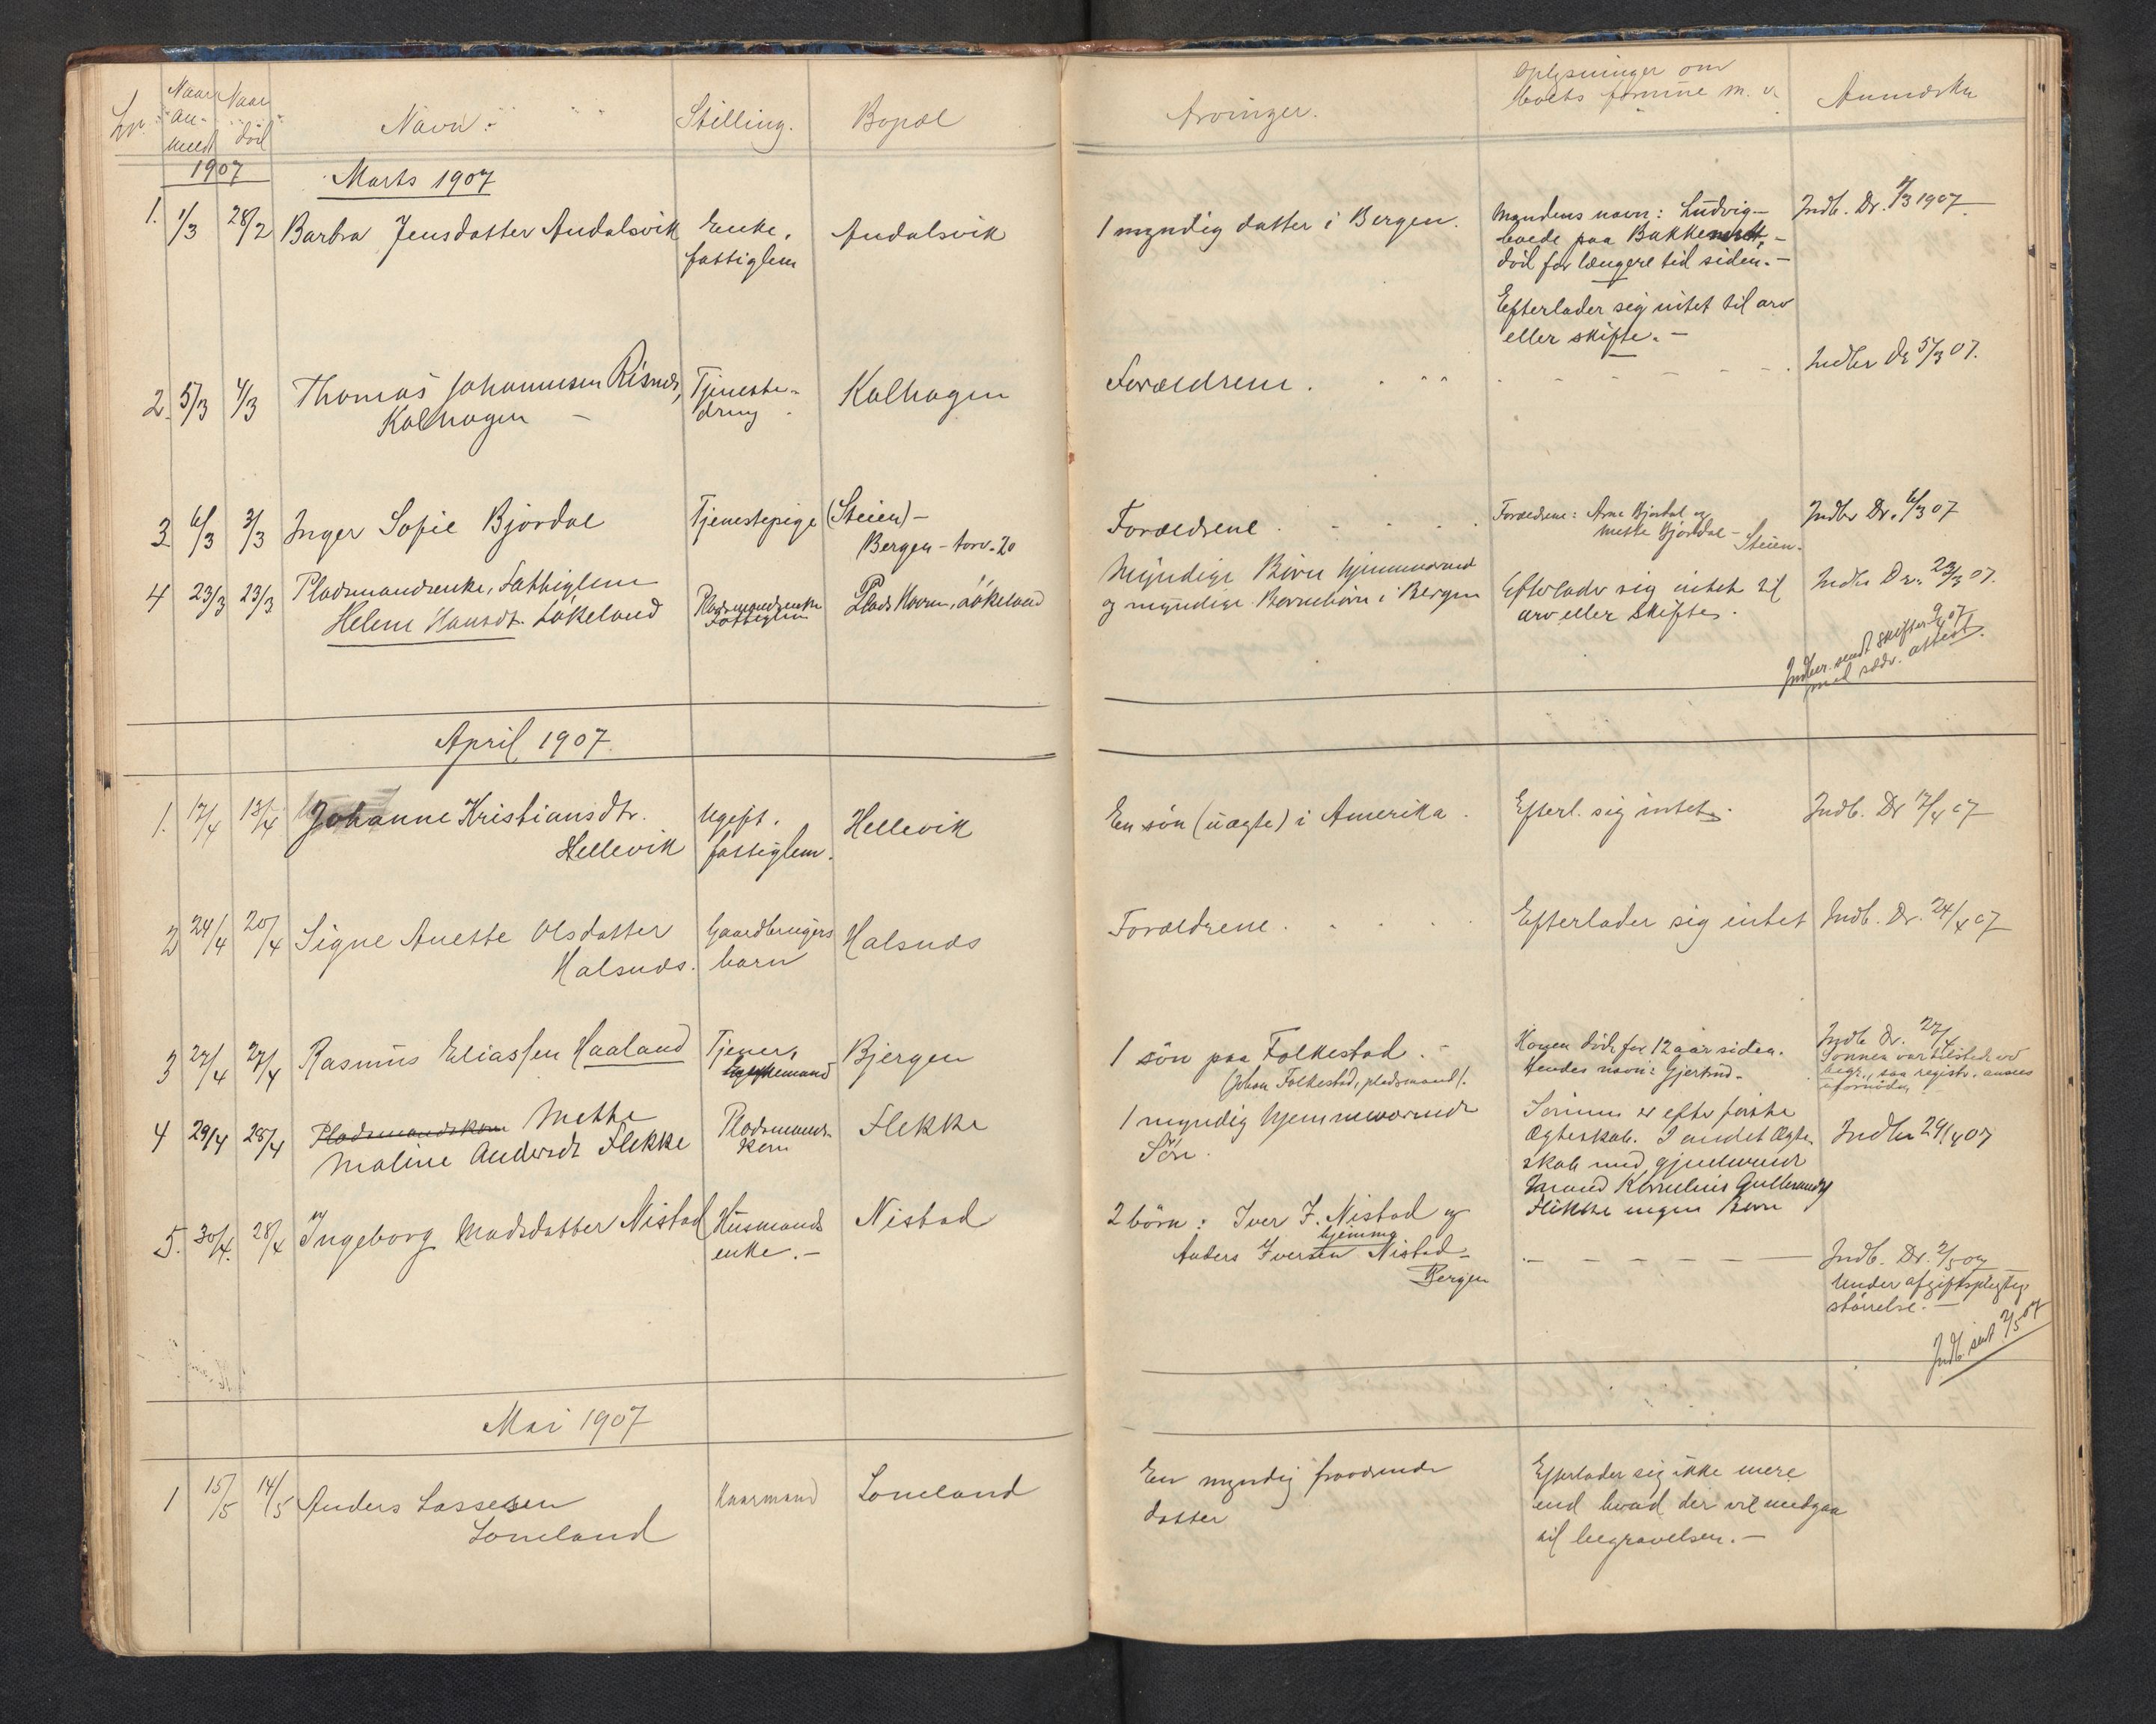 Naar an- meldt Naar död Navn: Stilling. Bopæl Arvinger. Oplysninger om boets formue m. v. Anmærkn
1907
Marts 1907
1. 1/3 28/2 Barbra Jensdatter Andalsvik Enke, fattiglem Andalsvik 1 myndig datter i Bergen. Mandens navn: Ludvig- Indb. Dr. 1/3 1907.
boede paa
död for længere tid siden.-
Efterlader sig intet til arv
eller skifte.-
2. 5/3 4/3 Thomas Johannesen Risnes, Tjeneste- dreng Kalhagen Forældrene. Indb Dr 5/3 07.
Kalhagen -
3 6/3 3/3 Inger Sofie Bjordal Tjenestepige (Steien)- Forældrene Forældrene: Arne Bjordal og Indb Dr. 6/3 07
Bergen - torv. 20 Mette Bjordal - Steien.
4 23/3 23/3 Pladsmandsenke, Fattiglem Pladsmandsenke Plads Løkeland Myndige Börn hjemmeværende Efterlader sig intet til Indb Dr. 23/3 07.
Helene Hansdt. Løkeland Fattiglem og myndige Barnebörn i Bergen arv eller Skifte.
Indber. sendt skifter 07
med sædv. attest.
April 1907.
1. 17/4 13/4 Johanne Kristiansdtr. Ugift. Hellevik En sön (uægte) i Amerika. Efterl. sig intet. Indb. Dr 17/4 07
Hellevik fattiglem.
2 24/4 20/4 Signe Anette Olsdatter Gaardbrugers Halsnæs Forældrene. Efterlader sig intet Indb. Dr. 24/4 07
Halsnæs. barn
3 27/4 27/4 Rasmus Eliassen Haaland Tjener, Bjergen 1 sön paa Folkestad.- Konen döde for 12 aar siden. Indb Dr. 27/4
(Johan Folkestad, pladsmand). Hendes navn: Gjertrud. Sönnen var tilstede ved
begr., saa registr. ansees
ufornöden
4 29/4 28/4 Pladsmandskone Mette Pladsmands- Flekke 1 myndig hjemmeværende Sönnen er efter første Indb 29/4 07
Maline Andersdt Flekke kone Sön. Ægteskab. I andet Ægte-
skab med gjenlevende
Mand Kornelius
Flekke ingen Børn
5. 30/4. 28/4 Ingeborg Madsdatter Nistad Husmands Nistad 2 börn: Iver I. Nistad og
enke.- hjemme
Anders Iversen Nistad- Indb. Dr. 2/5 07
Bergen Under afgiftspligtig
störrelse.-
Indb. sendt 2/5 07
Mai 1907
1 15/5 14/5 Anders Lassesen Kaarmand Loneland En myndig fraværende Efterlader sig ikke mere
Loneland datter end hvad der vil medgaa
til begravelsen.-